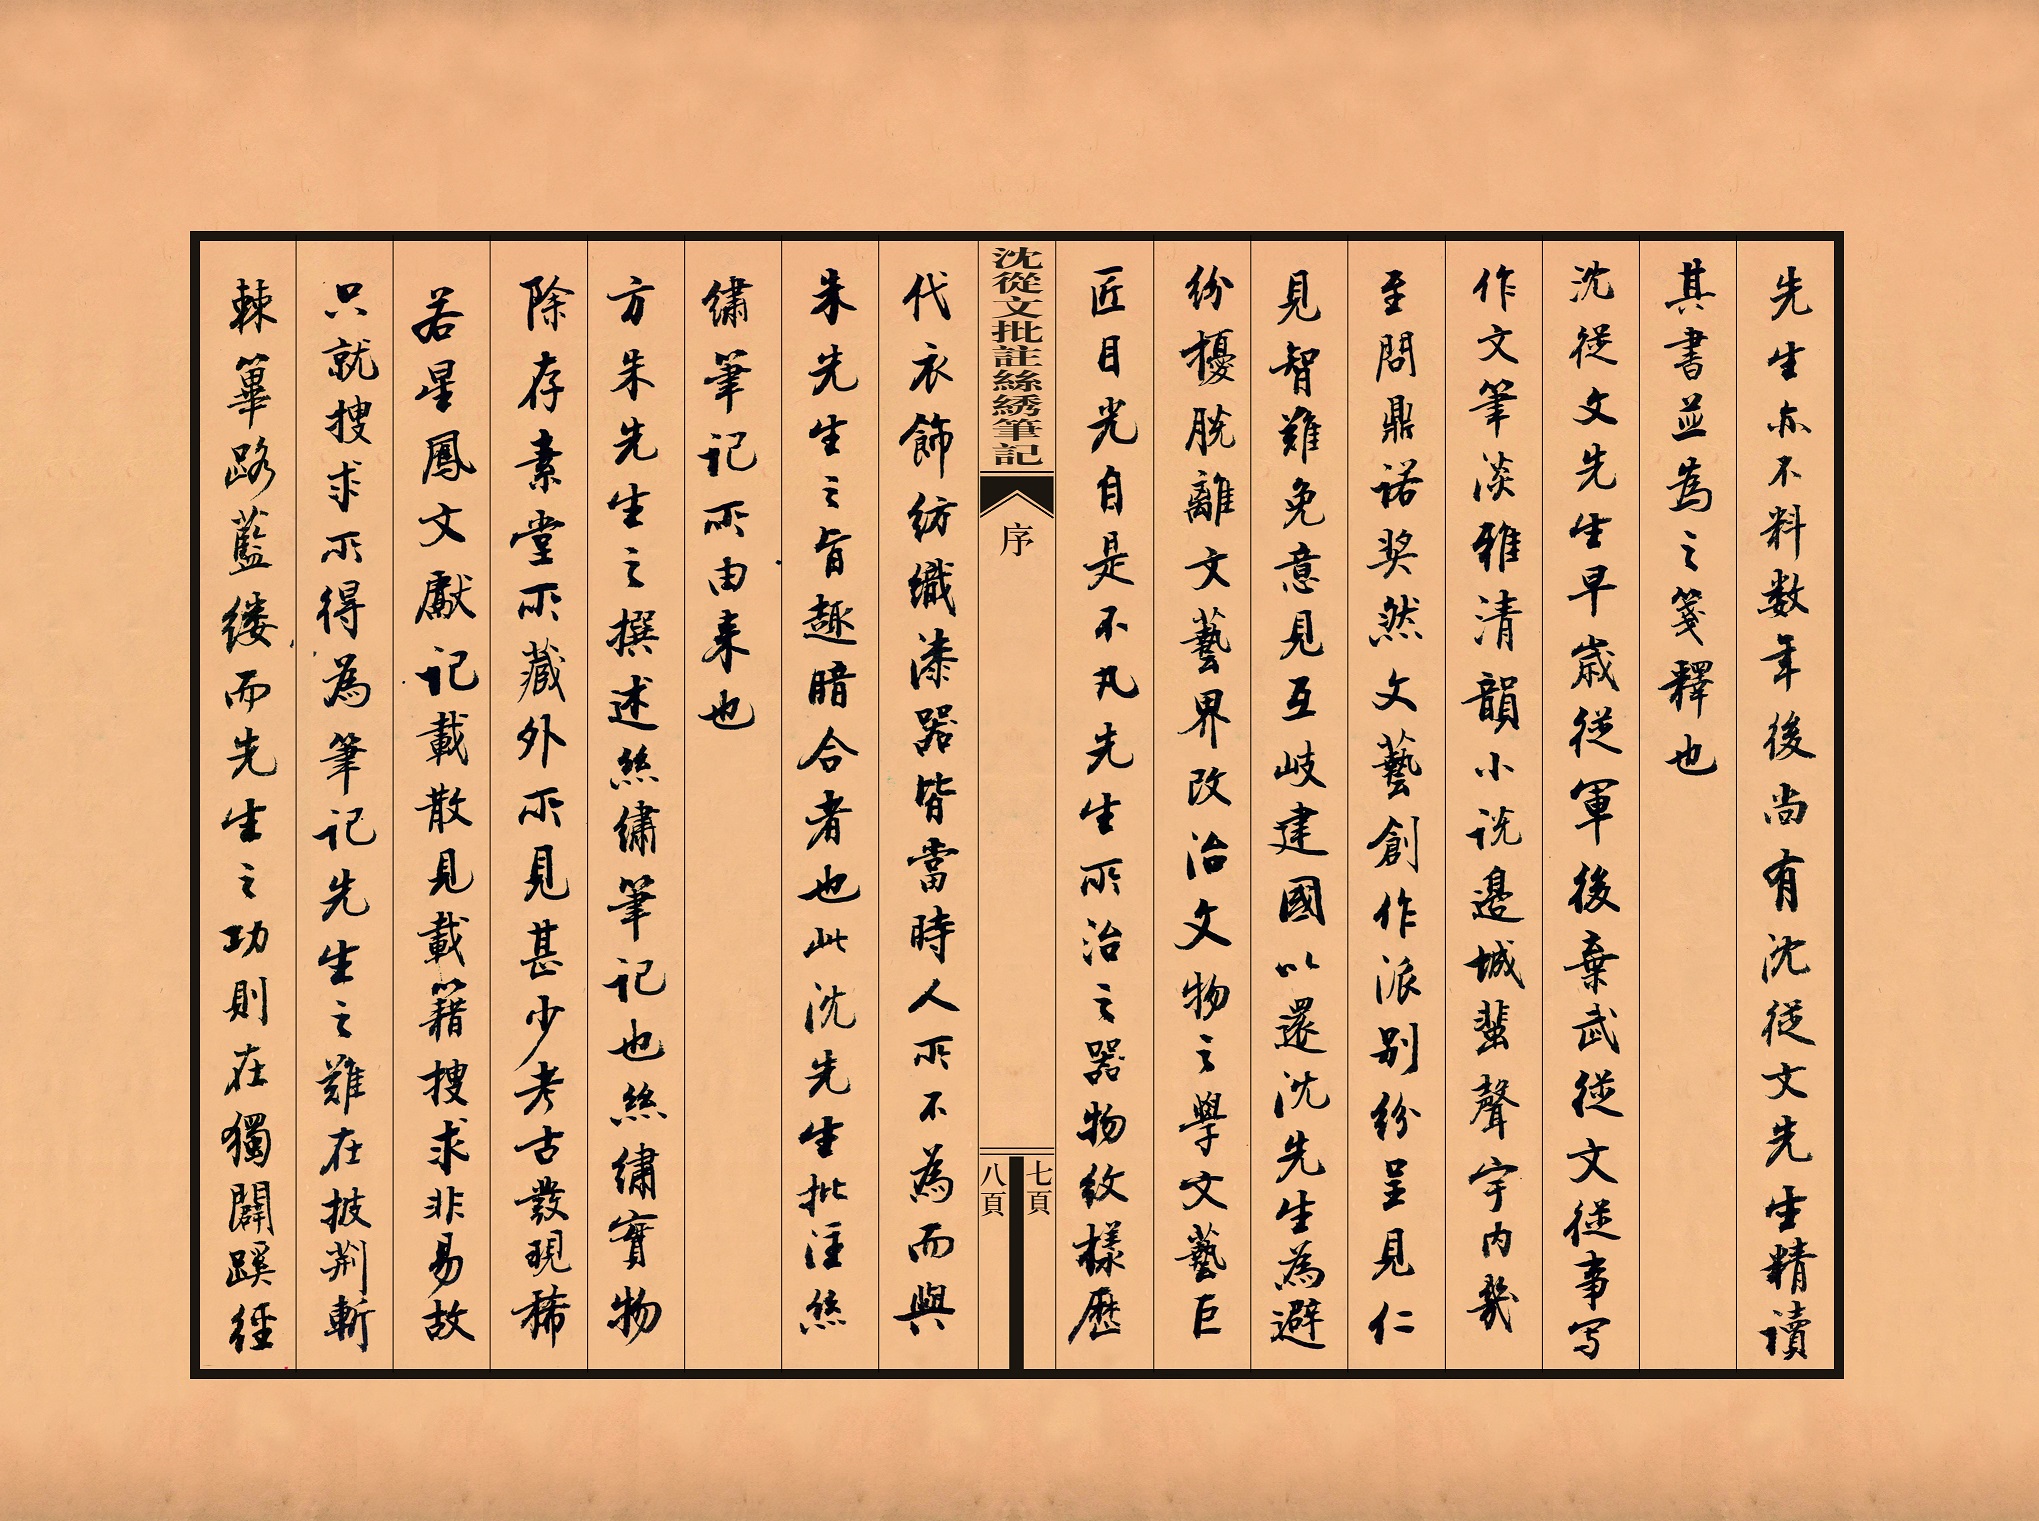 先生亦不料数年後尚有沈從文先生精讀
其書並為之箋釋也
沈從文先生早歲從軍後棄武從文從事写
作文筆淡雅清韻小说邊城蜚聲宇内幾
至問鼎诺奖然文藝創作派别紛呈見仁
見智難免意見互歧建國以還沈先生為避
紛擾脱離文藝界改治文物之學文藝巨
匠目光自是不凡先生所治之器物紋樣歷
沈從文批註絲綉筆記
序
七頁
八頁
代衣飾紡織漆器皆當時人所不為而與
朱先生之旨趣暗合者也此沈先生批注絲
繡筆記所由来也
方朱先生之撰述絲繡筆記也絲繡實物
除存素堂所藏外所見甚少考古發現稀
若星鳳文獻記載散見載籍搜求非易故
只就搜求所得為筆記先生之難在披荆斬
棘篳路藍缕而先生之功則在獨闢蹊徑